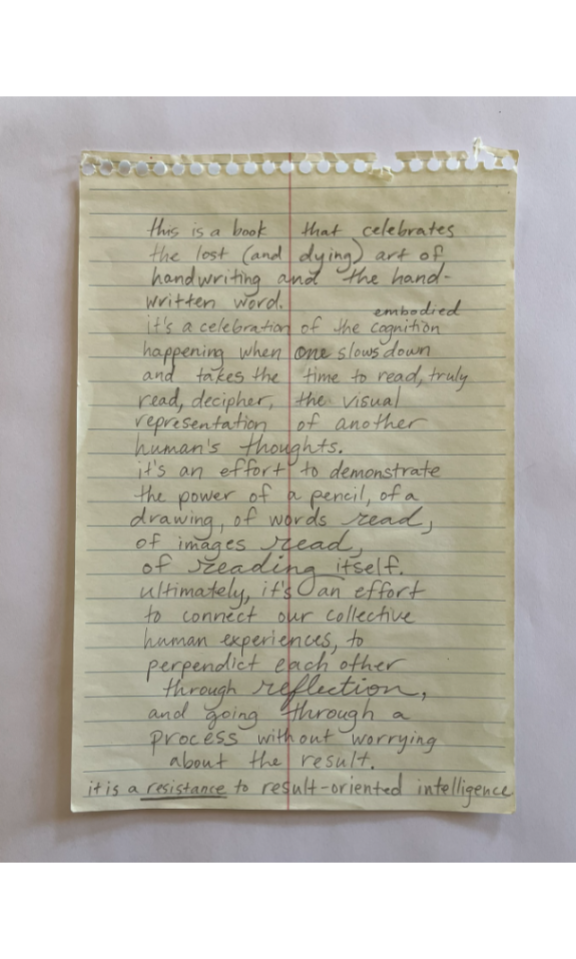 this is a book that celebrates
the lost (and dying) art of
handwriting and the hand-
written word.
embodied
it's a celebration of the cognition
happening when one slows down
and takes the time to read, truly
read, decipher, the visual
representation of another
human's thoughts.
it's an effort to demonstrate
the power of a pencil, of a
drawing, of words read,
of images read,
of reading itself.
ultimately, it's an effort
to connect our collective
human experiences, to
perpendict each other
through reflection,
and going through a
process without worrying
about the result.
it is a resistance to result-oriented intelligence